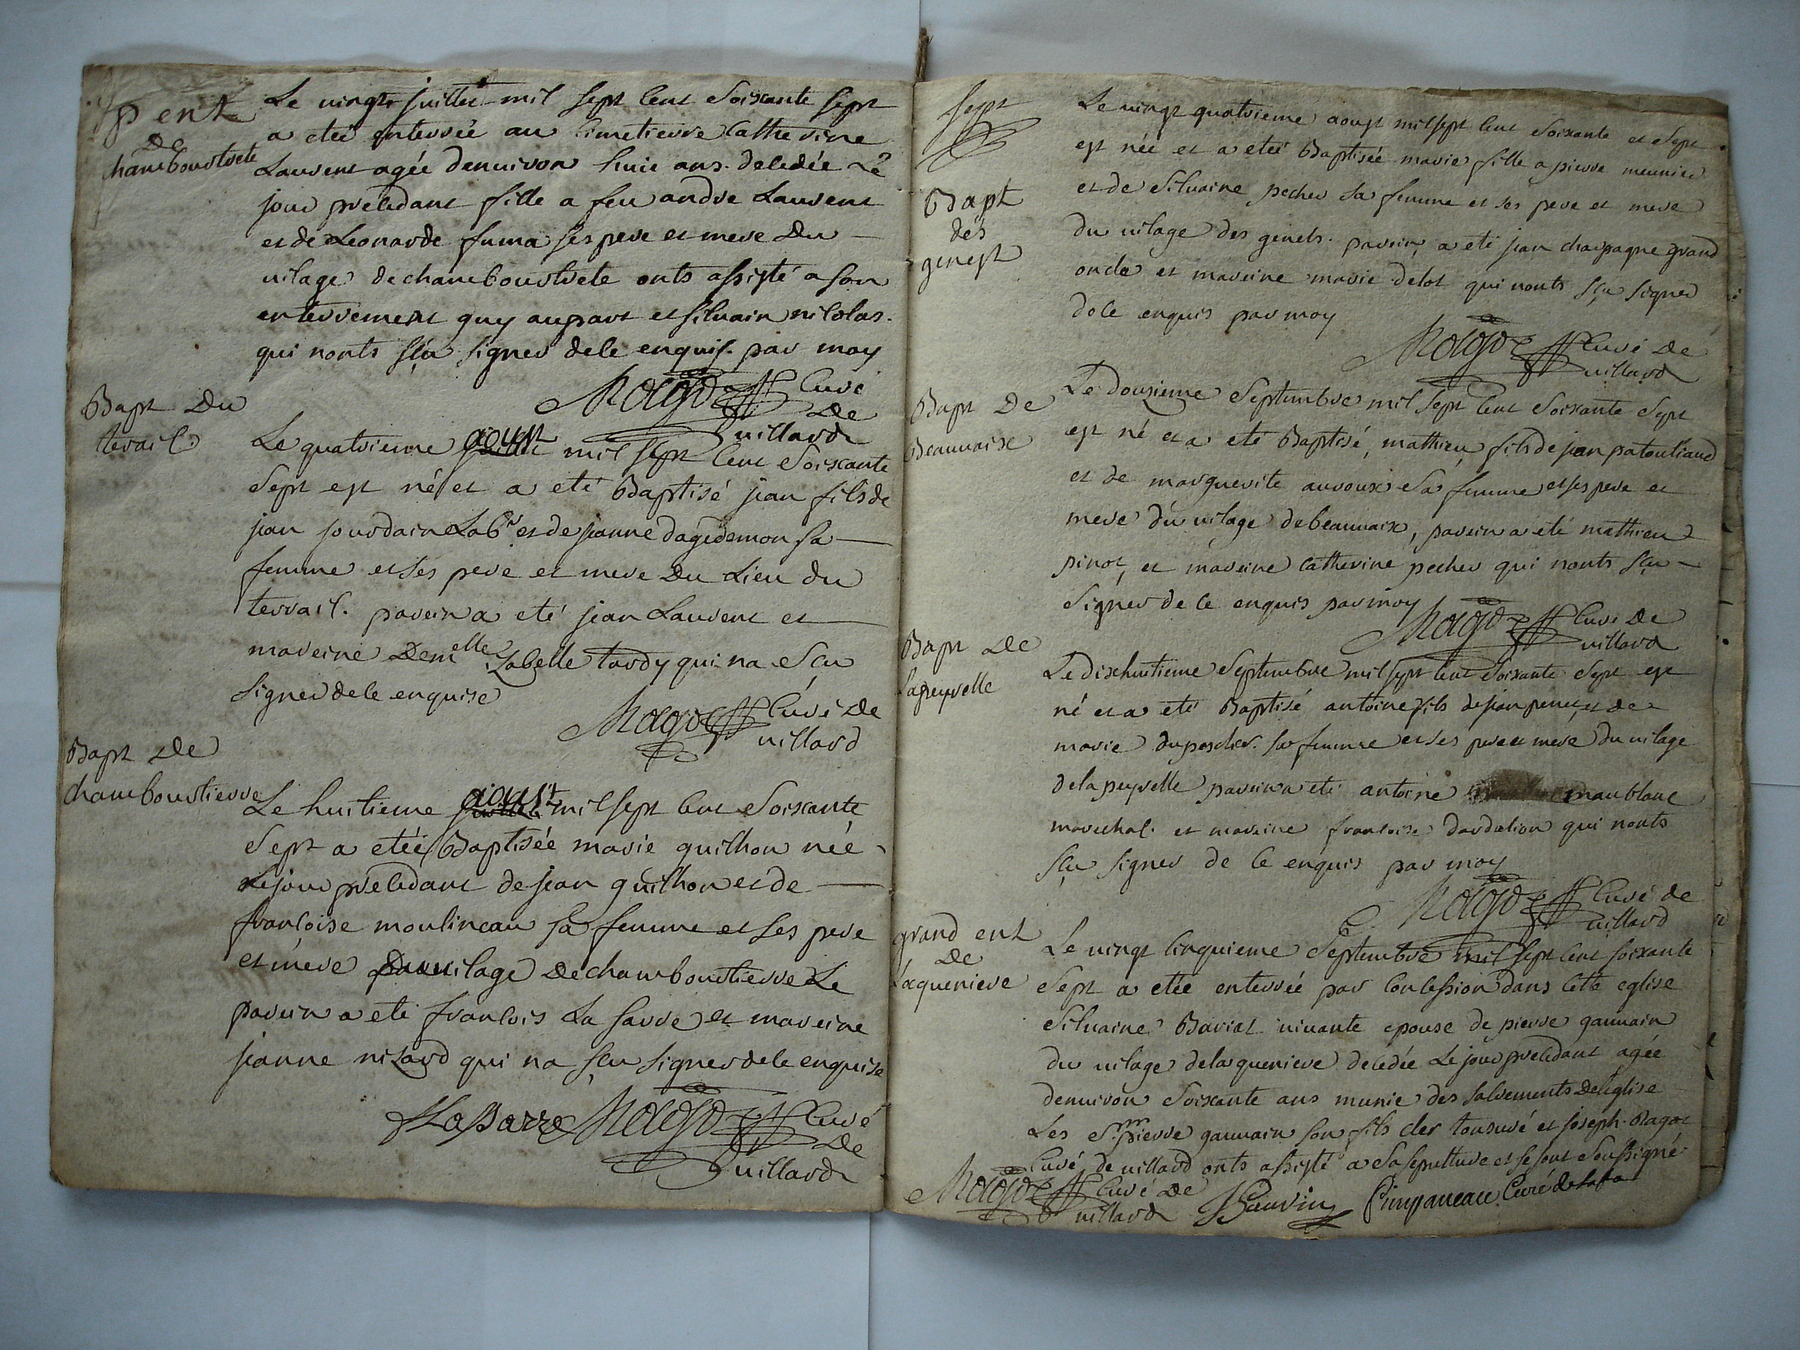 p ent
De
chamboustrete
Le vingt juillet mil sept cent soixante sept
a eteé enterrée au cimetierre catherine
Laurent agée denuiron huit ans decedée Le
jour précedant fille a feu andre Laurent
et de Leonarde fuma ses pere et mere Du
uilage de chamboustrete onts assisté a son
enterrement guy aupart et siluain nicolas
qui nonts sçu signer de ce enquis par moy
Curé
De
uillard
Bapt Du
terrail
Le quatrieme aoust mil sept cent soixante
Sept est né et a eté Baptisé jean fils de
jean jourdain Labr et de jeanne dagedemon sa
femme et ses pere et mere Du Lieu du
terrail. parein a eté jean Laurent et
mareine Demelle Isabelle tardy qui na sçu
signer de ce enquise
Curé De
uillard
Bapt De
chamboustierre
Le huitieme aoust mil sept cent soixante
Sept a eteé Baptisée marie guilhon née
Le jour précedant de jean guilhon et de
francoise moulineau sa femme et ses pere
et mere du uilage De chamboustierre Le
parein a eté francois La sarre et mareine
jeanne nizard qui na sçu signer de ce enquise
Lassarre
Curé
De
uillard
sept
Bapt
des
genest
Le vingt quatrieme aoust mil sept cent soixante et sept
est née et a eteé Baptisée marie fille a pierre meunier
et de siluaine pecher sa femme et ses pere et mere
du uilage des genets. parein a eté jean chapagne grand
oncle et mareine marie delot qui nonts sçu signer
de ce enquis par moy
Curé De
uillard
Bapt De
Beauuaix
Le douzieme Septembre mil sept cent soixante sept
est né et a eté Baptisé, mathieu fils de jean patoutiaud
et de marguerite auroux sa femme et ses pere et
mere du uilage de beauuaix, parein a eté mathieu
pinot, et mareine catherine pecher qui nonts sçu
signer de ce enquis par moy
Curé De
uillard
Bapt De
Lapeyrelle
Le dixhuitieme Septembre mil sept cent soixante sept est
né et a eté Baptisé antoine fils de jean et de
marie duposcher sa femme et ses pere et mere du uilage
de la peyrelle parein a eté antoine maublanc
marechal. et mareine francoise dardalion qui nonts
sçu signer de ce enquis par moy
Curé de
uillard
grand ent
De
Laqueriere
Le vingt cinquieme Septembre mil sept cent soixante
sept a eteé enterrée par concession dans cette eglise
siluaine Bariat viuante epouse de pierre gauuain
du uilage de laqueriere decedée Le jour précedant agée
denuiron soixante ans munie des sacrements De leglise
Les Srs pierre gauuain son fils cler tonsuré et joseph Ragot
Curé de uillard onts assisté a sa sepulture et se sont soussigné
Curé De
uillard
Gauvin
Curé de